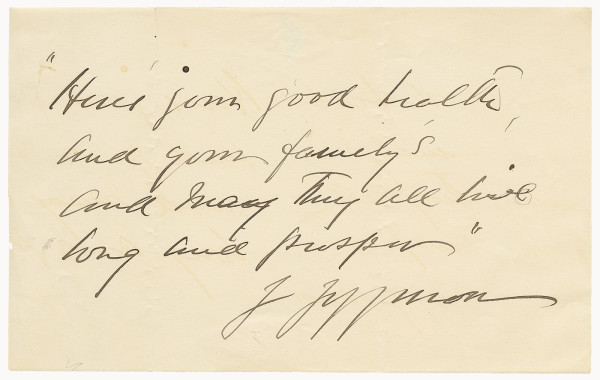 "Here's your good health,
and your family's
and may they all live
long and prosper"
J Jefferson